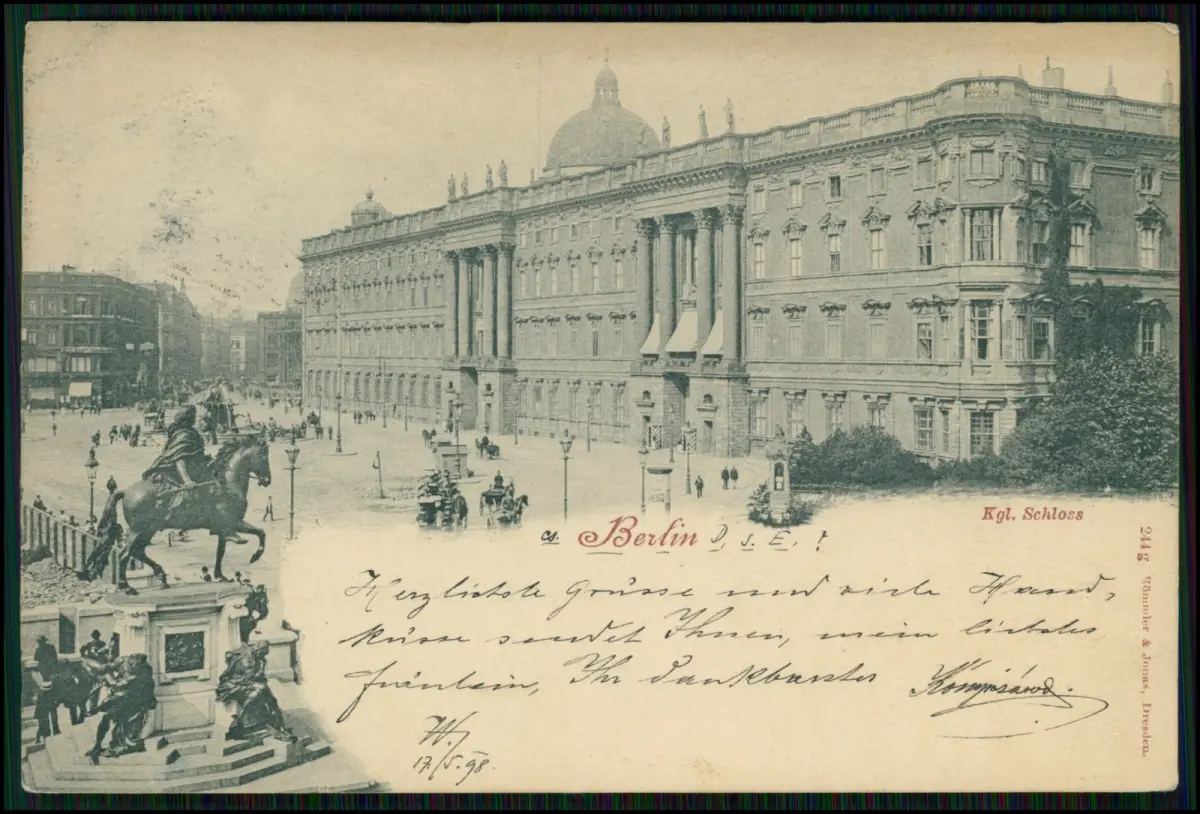 Kgl. Schloss
cs. Berlin D. s. E. ?
Herzlichste Grüsse und viele Hand-
küsse sendet Ihnen, mein liebstes
Fräulein, Ihr dankbarster
W.
17/5.98.
244 g Römmler & Jonas, Dresden.